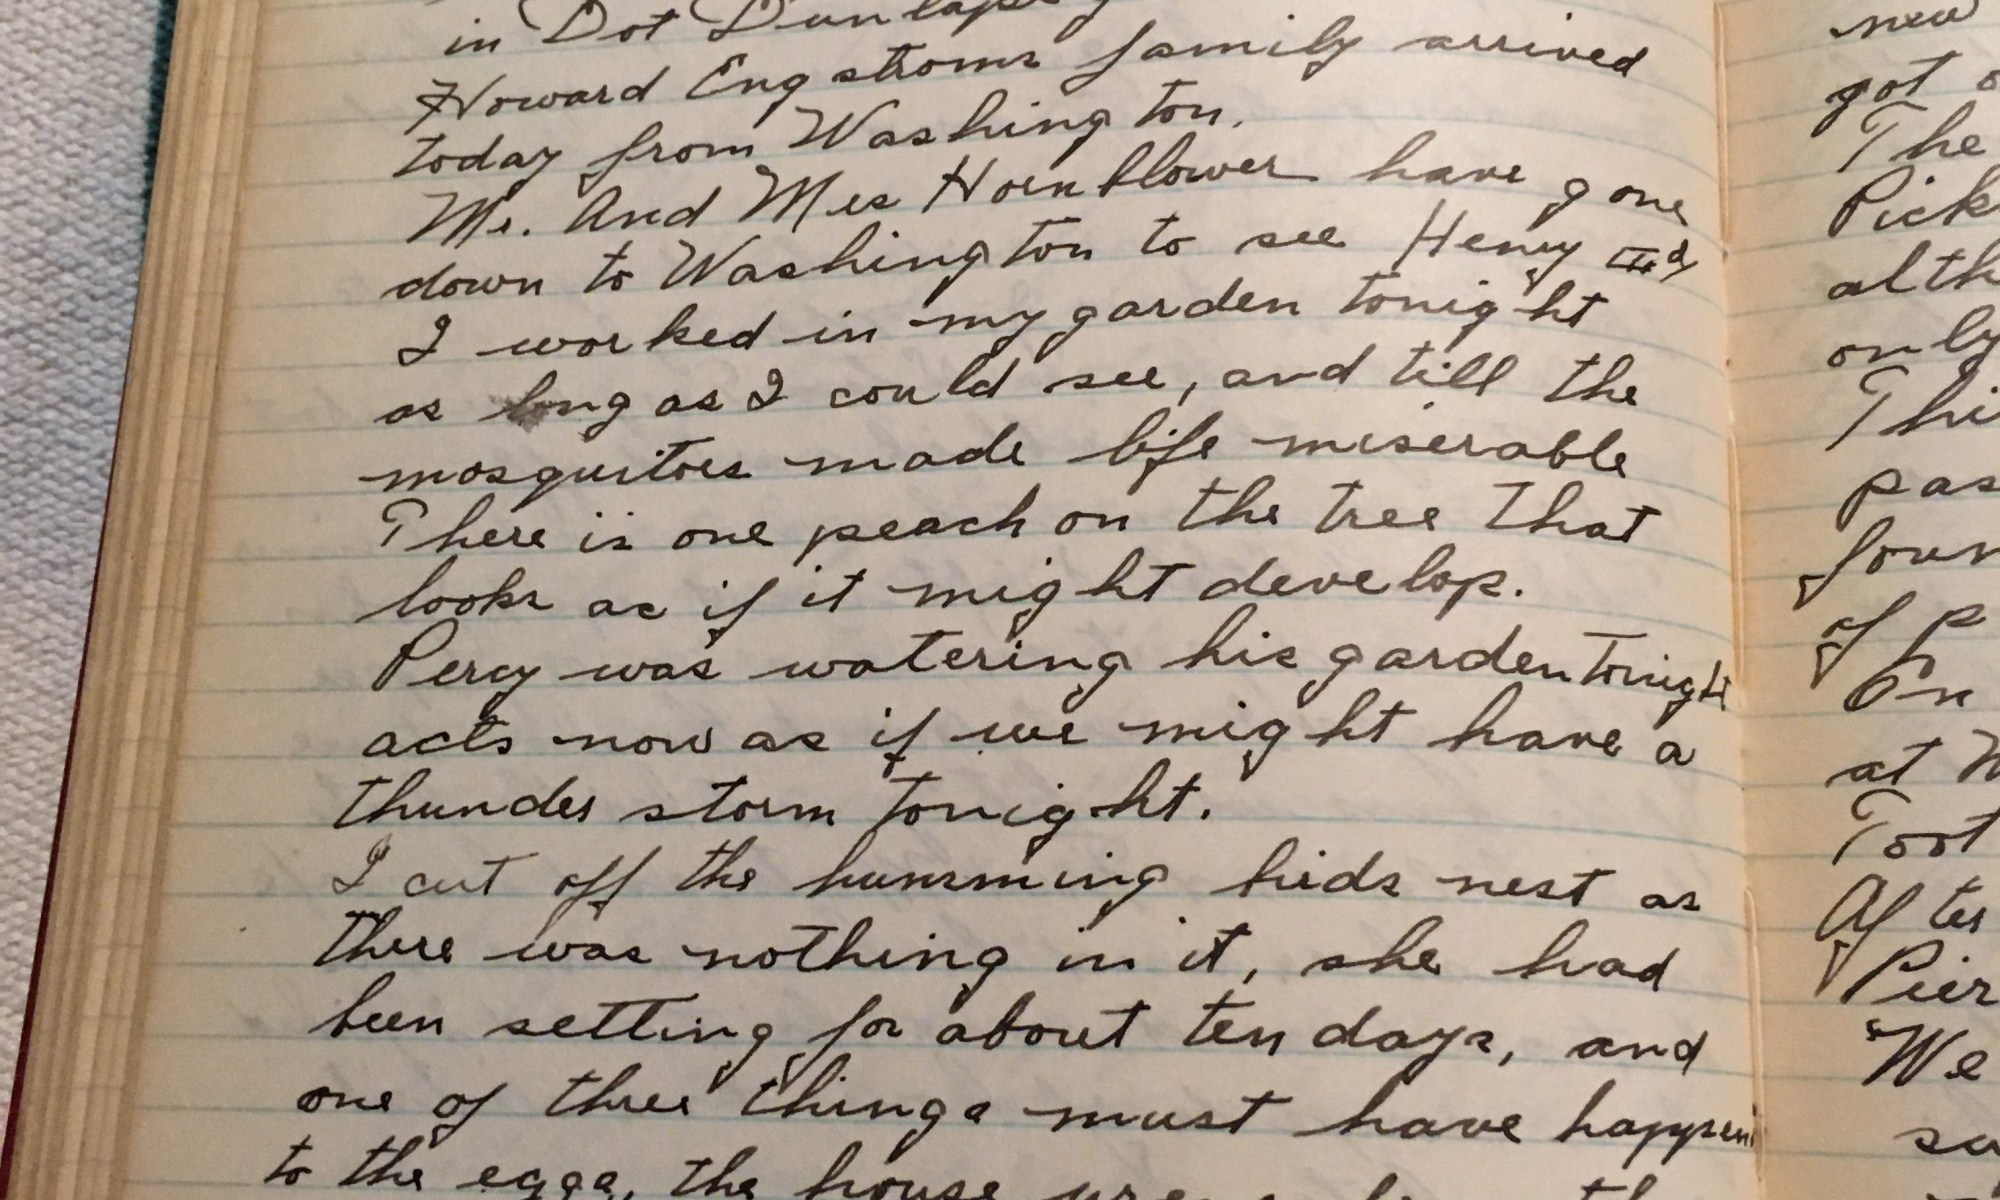 in Dot Dunlaps
Howard Engstroms family arrived
today from Washington.
Mr. And Mrs Hornblower have gone
down to Washington to see Henry IIId
I worked in my garden tonight
as long as I could see, and till the
mosquitoes made life miserable
There is one peach on the tree that
looks as if it might develop.
Percy was watering his garden tonight
acts now as if we might have a
thunder storm tonight.
I cut off the humming birds nest as
there was nothing in it, she had
been setting for about ten days, and
one of three things must have
to the eggs, the house
new
got
The
only
at
After
We